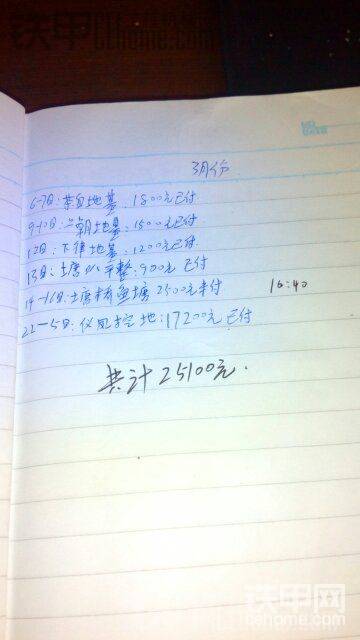 铁甲网
cehome.com
3月份
6-7日:莱自地基 1800元已付
9-10日:兰朝地基:1500元已付
12日:下律地基:1200元已付
13日:土唐 平整:900元 已付
14-16日:土唐桥鱼塘 2500元未付 16:40
22-5日:仪凤挖地:17200元已付
共计25100元.
铁甲网
cehome.com